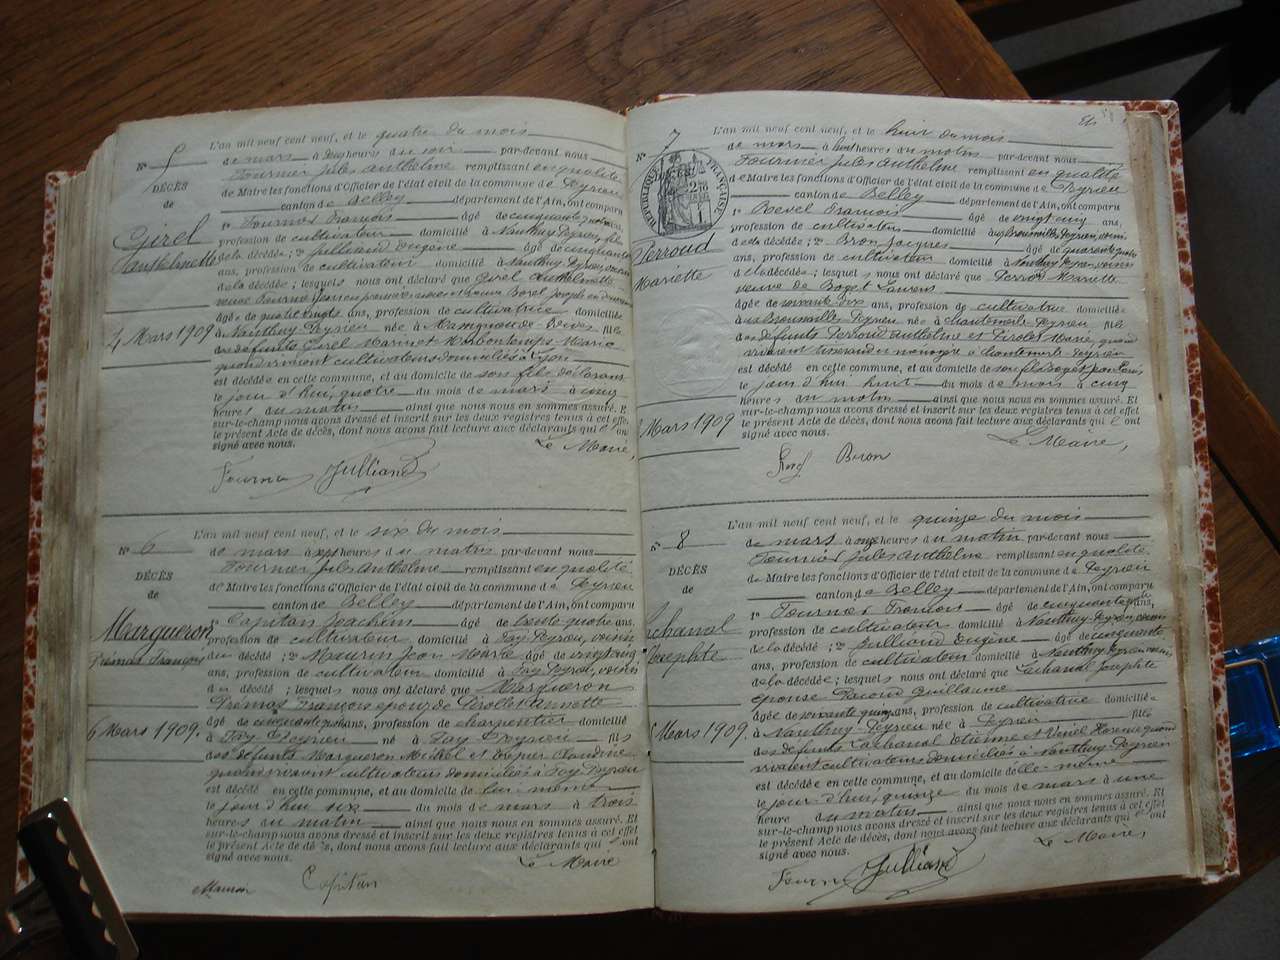 L'an mil neuf cent neuf, et le quatre du mois
N° 5
de mars à heures du soir par-devant nous
DÉCÈS
de
Fournier Jules Anthelme remplissant en qualité
de Maire les fonctions d'Officier de l'état civil de la commune de Peyrieu
canton de Belley département de l'Ain, ont comparu
Girel
Anthelmette
1° Fournier François âgé de cinquante quatre ans,
profession de cultivateur domicilié à Nanthuy Peyrieu, fils
de la décédée ; 2° Julliand Eugène âgé de cinquante
ans, profession de cultivateur domicilié à Nanthuy Peyrieu, voisin
de la décédée ; lesquels nous ont déclaré que Girel Anthelmette
veuve Fournier en premières noces et veuve Borel Joseph en
âgée de quatre vingts ans, profession de cultivatrice domiciliée
4 Mars 1909
à Nanthuy Peyrieu née à fille
de défunts Girel Marin et Marie
quand vivaient cultivateurs domiciliés à
est décédée en cette commune, et au domicile de son fils déclarant
le jour d'hui, quatre du mois de mars à cinq
heures du matin ainsi que nous nous en sommes assuré. Et
sur-le-champ nous avons dressé et inscrit sur les deux registres tenus à cet effet
le présent Acte de décès, dont nous avons fait lecture aux déclarants qui l'ont
signé avec nous.
Le Maire,
Fournier Julliand
L'an mil neuf cent neuf, et le six du mois
N° 6
de mars à heures du matin par-devant nous
DÉCÈS
de
Fournier Jules Anthelme remplissant en qualité
de Maire les fonctions d'Officier de l'état civil de la commune de Peyrieu
canton de Belley département de l'Ain, ont comparu
Margueron
Prémas François
1° Capitan Joachim âgé de trente quatre ans,
profession de cultivateur domicilié à Fay Peyrieu, voisin
du décédé ; 2° Maurin Jean Marie âgé de
ans, profession de cultivateur domicilié à Fay Peyrieu, voisin
du décédé ; lesquels nous ont déclaré que Margueron
Prémas François époux de Pérollet Annette
âgé de cinquante ans, profession de charpentier domicilié
6 Mars 1909.
à Fay Peyrieu né à Fay Peyrieu fils
des défunts Margueron Michel et Claudine
quand vivaient cultivateurs domiciliés à Fay Peyrieu
est décédé en cette commune, et au domicile de lui-même
le jour d'hui six du mois de mars à trois
heures du matin ainsi que nous nous en sommes assuré. Et
sur-le-champ nous avons dressé et inscrit sur les deux registres tenus à cet effet
le présent Acte de décès, dont nous avons fait lecture aux déclarants qui l'ont
signé avec nous.
Le Maire
Maurin Capitan
L'an mil neuf cent neuf, et le huit du mois
N° 7
de mars à huit heures du matin par-devant nous
Fournier Jules Anthelme remplissant en qualité
de Maire les fonctions d'Officier de l'état civil de la commune de Peyrieu
canton de Belley département de l'Ain, ont comparu
RÉPUBLIQUE FRANÇAISE
Perroud
Mariette
1° Revel François âgé de vingt cinq ans,
profession de cultivateur domicilié à Brouville Peyrieu, voisin
de la décédée ; 2° Biron Jacques âgé de quarante quatre
ans, profession de cultivateur domicilié à Nanthuy Peyrieu, voisin
de la décédée ; lesquels nous ont déclaré que Perroud Mariette
veuve de Boget Laurent
âgée de soixante dix ans, profession de cultivatrice domiciliée
à Brouville Peyrieu née à Chantemerle Peyrieu fille
des défunts Perroud Anthelme et Pirolet Marie, quand
vivaient tisserand et ménagère à Chantemerle Peyrieu
est décédée en cette commune, et au domicile de son fils Boget Jean Louis
le jour d'hui huit du mois de mars à cinq
heures du matin ainsi que nous nous en sommes assuré. Et
8 Mars 1909
sur-le-champ nous avons dressé et inscrit sur les deux registres tenus à cet effet
le présent Acte de décès, dont nous avons fait lecture aux déclarants qui l'ont
signé avec nous.
Le Maire,
Biron
L'an mil neuf cent neuf, et le quinze du mois
N° 8
de mars à onze heures du matin, par-devant nous
DÉCÈS
de
Fournier Jules Anthelme remplissant en qualité
de Maire les fonctions d'Officier de l'état civil de la commune de Peyrieu
canton de Belley département de l'Ain, ont comparu
Lachanal
Josephte
1° Fournier François âgé de cinquante quatre ans,
profession de cultivateur domicilié à Nanthuy Peyrieu, voisin
de la décédée ; 2° Julliand Eugène âgé de cinquante
ans, profession de cultivateur domicilié à Nanthuy Peyrieu, voisin,
de la décédée ; lesquels nous ont déclaré que Lachanal Josephte
épouse Pacoud Guillaume
âgée de soixante quinze ans, profession de cultivatrice domiciliée
15 Mars 1909.
à Nanthuy Peyrieu née à Peyrieu fille
des défunts Lachanal Etienne et quand
vivaient cultivateurs domiciliés à Nanthuy Peyrieu
est décédée en cette commune, et au domicile d'elle-même
le jour d'hui, quinze du mois de mars à une
heure du matin ainsi que nous nous en sommes assuré. Et
sur-le-champ nous avons dressé et inscrit sur les deux registres tenus à cet effet
le présent Acte de décès, dont nous avons fait lecture aux déclarants qui l'ont
signé avec nous.
Le Maire,
Fournier Julliand